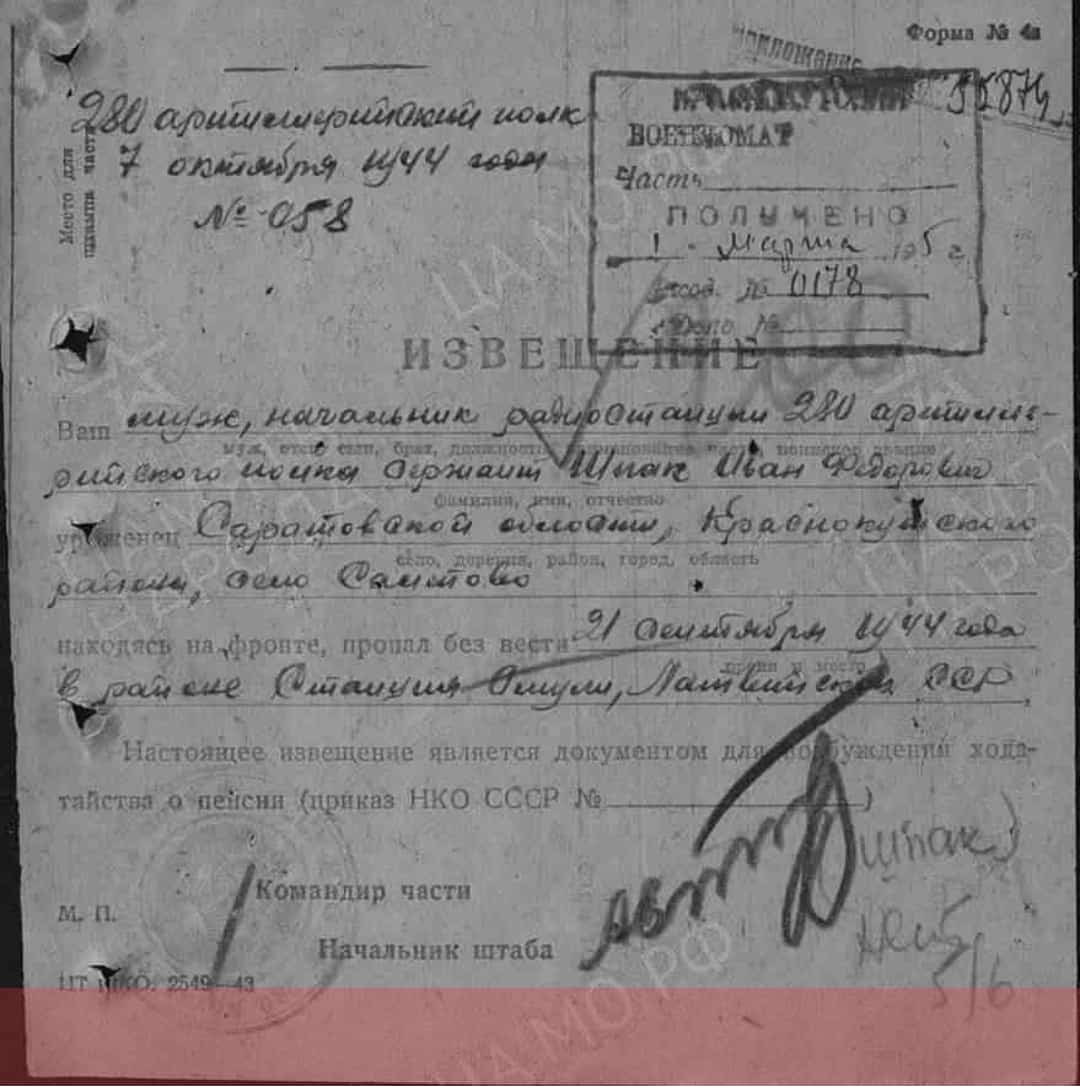 Форма № 4а
Приложение
55874
Место для штампа части
280 артиллерийский полк
7 октября 1944 года
№ 058
ВОЕНКОМАТ
Часть
ПОЛУЧЕНО
1 марта 195 г
№ 0178
№
ИЗВЕЩЕНИЕ
Ваш муж, начальник радиостанции 280 артилле-
муж, отец, сын, брат, должность, воинское звание
рийского полка Сержант Шпак Иван Федорович
фамилия, имя, отчество
уроженец Саратовской области, Краснокутского
село, деревня, район, город, область
района, село
находясь на фронте, пропал без вести 21 сентября 1944 года
время и место
в районе Станция Огули, Латвийской ССР
Настоящее извещение является документом для возбуждения хода-
тайства о пенсии (приказ НКО СССР № )
(Шпак)
Командир части
М. П.
Начальник штаба
5/6
НКО. 2549—43
ЦА МО РФ